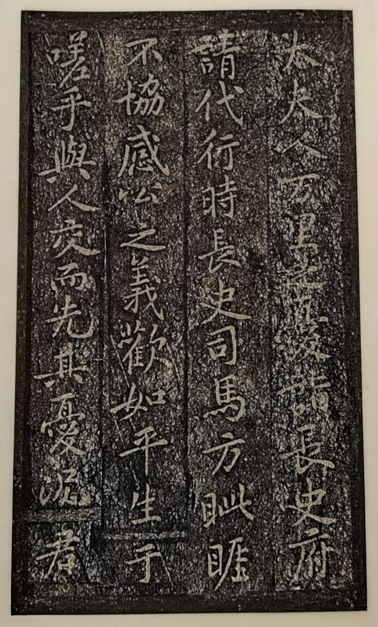 太夫人万里之憂詣長史府
請代行時長史司馬方眦睚
不協感公之義歡如平生于
嗟乎與人交而先其憂況君